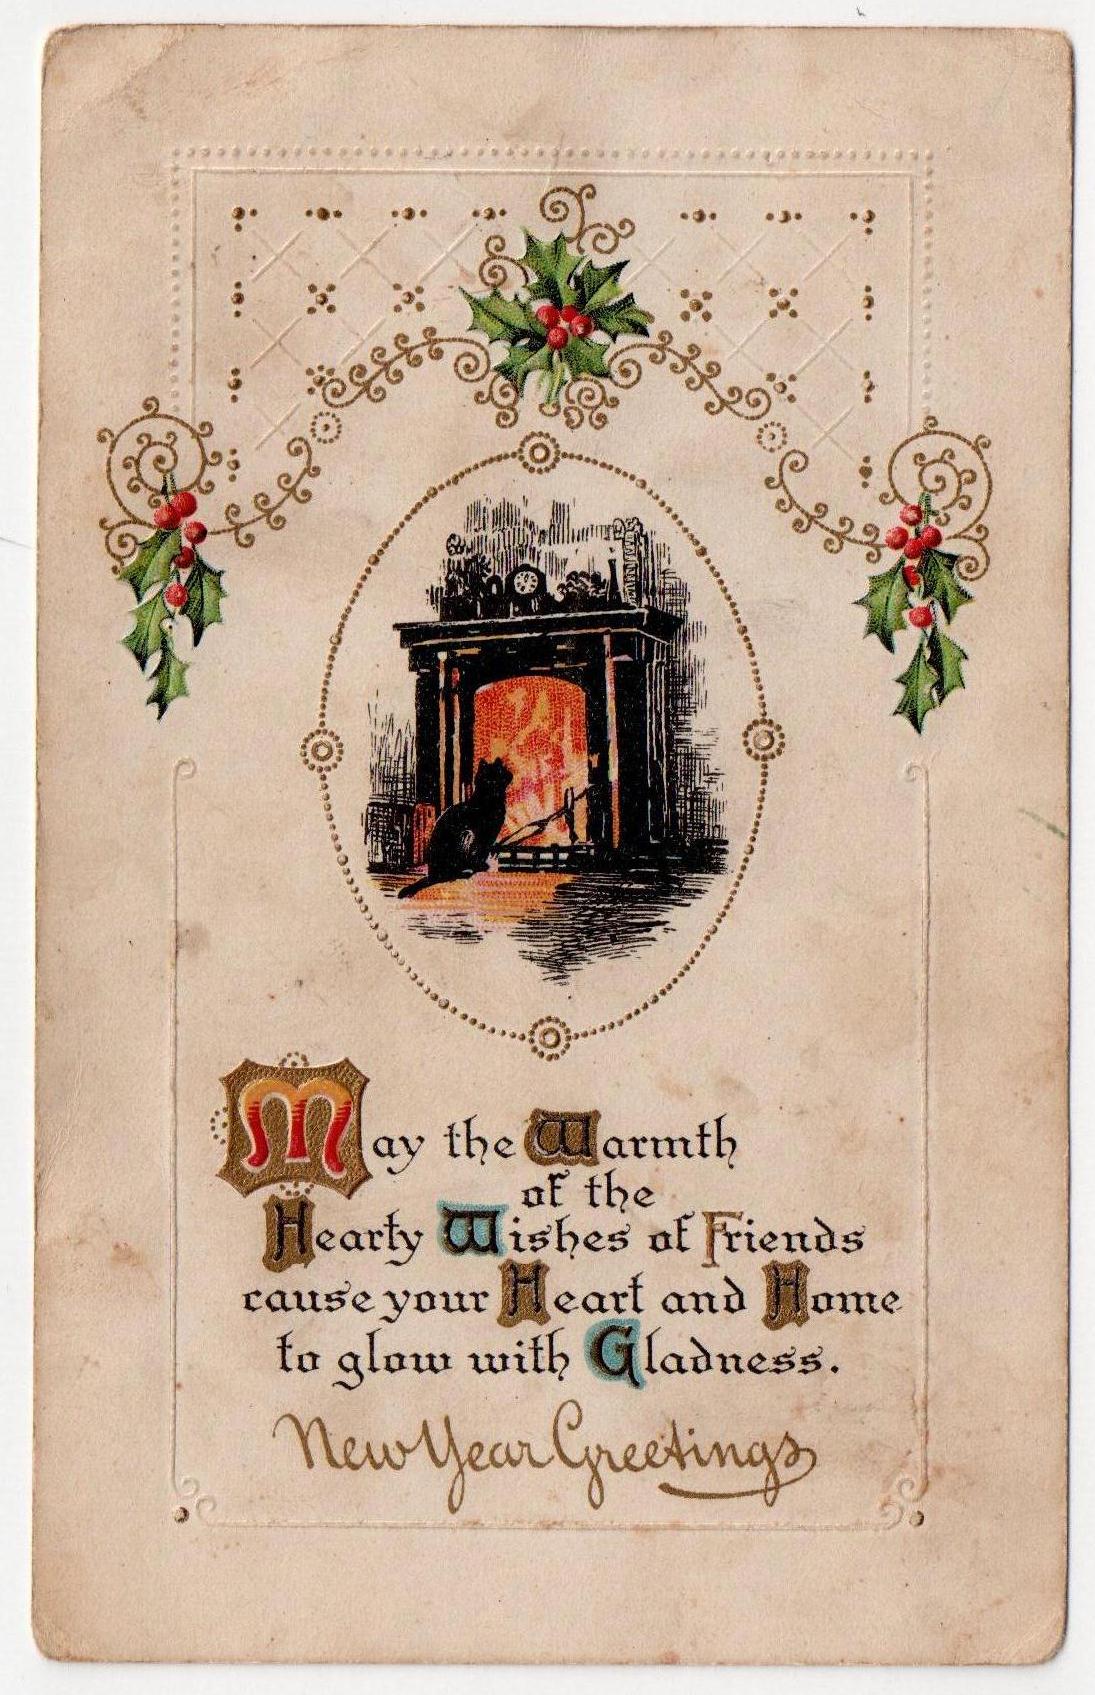 May the Warmth
of the
Hearty Wishes of Friends
cause your Heart and Home
to glow with Gladness.
New Year Greetings